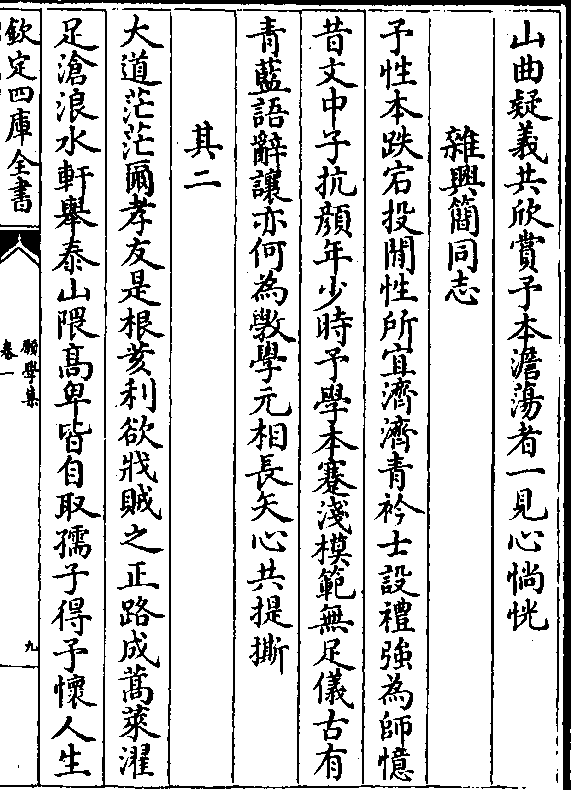 山曲疑義共欣賞予本澹蕩者一見心惝恍
雜興簡同志
予性本跌宕投閒性所宜濟濟青衿士設禮強為師憶
昔文中子抗顔年少時予學本蹇淺模範無足儀古有
青藍語辭讓亦何為斆學元相長矢心共提撕
其二
大道茫茫爾孝友是根荄利欲戕賊之正路成蒿萊濯
足滄浪水軒舉泰山隈髙卑皆自取孺子得予懷人生
欽定四庫全書
願學集
卷一
九